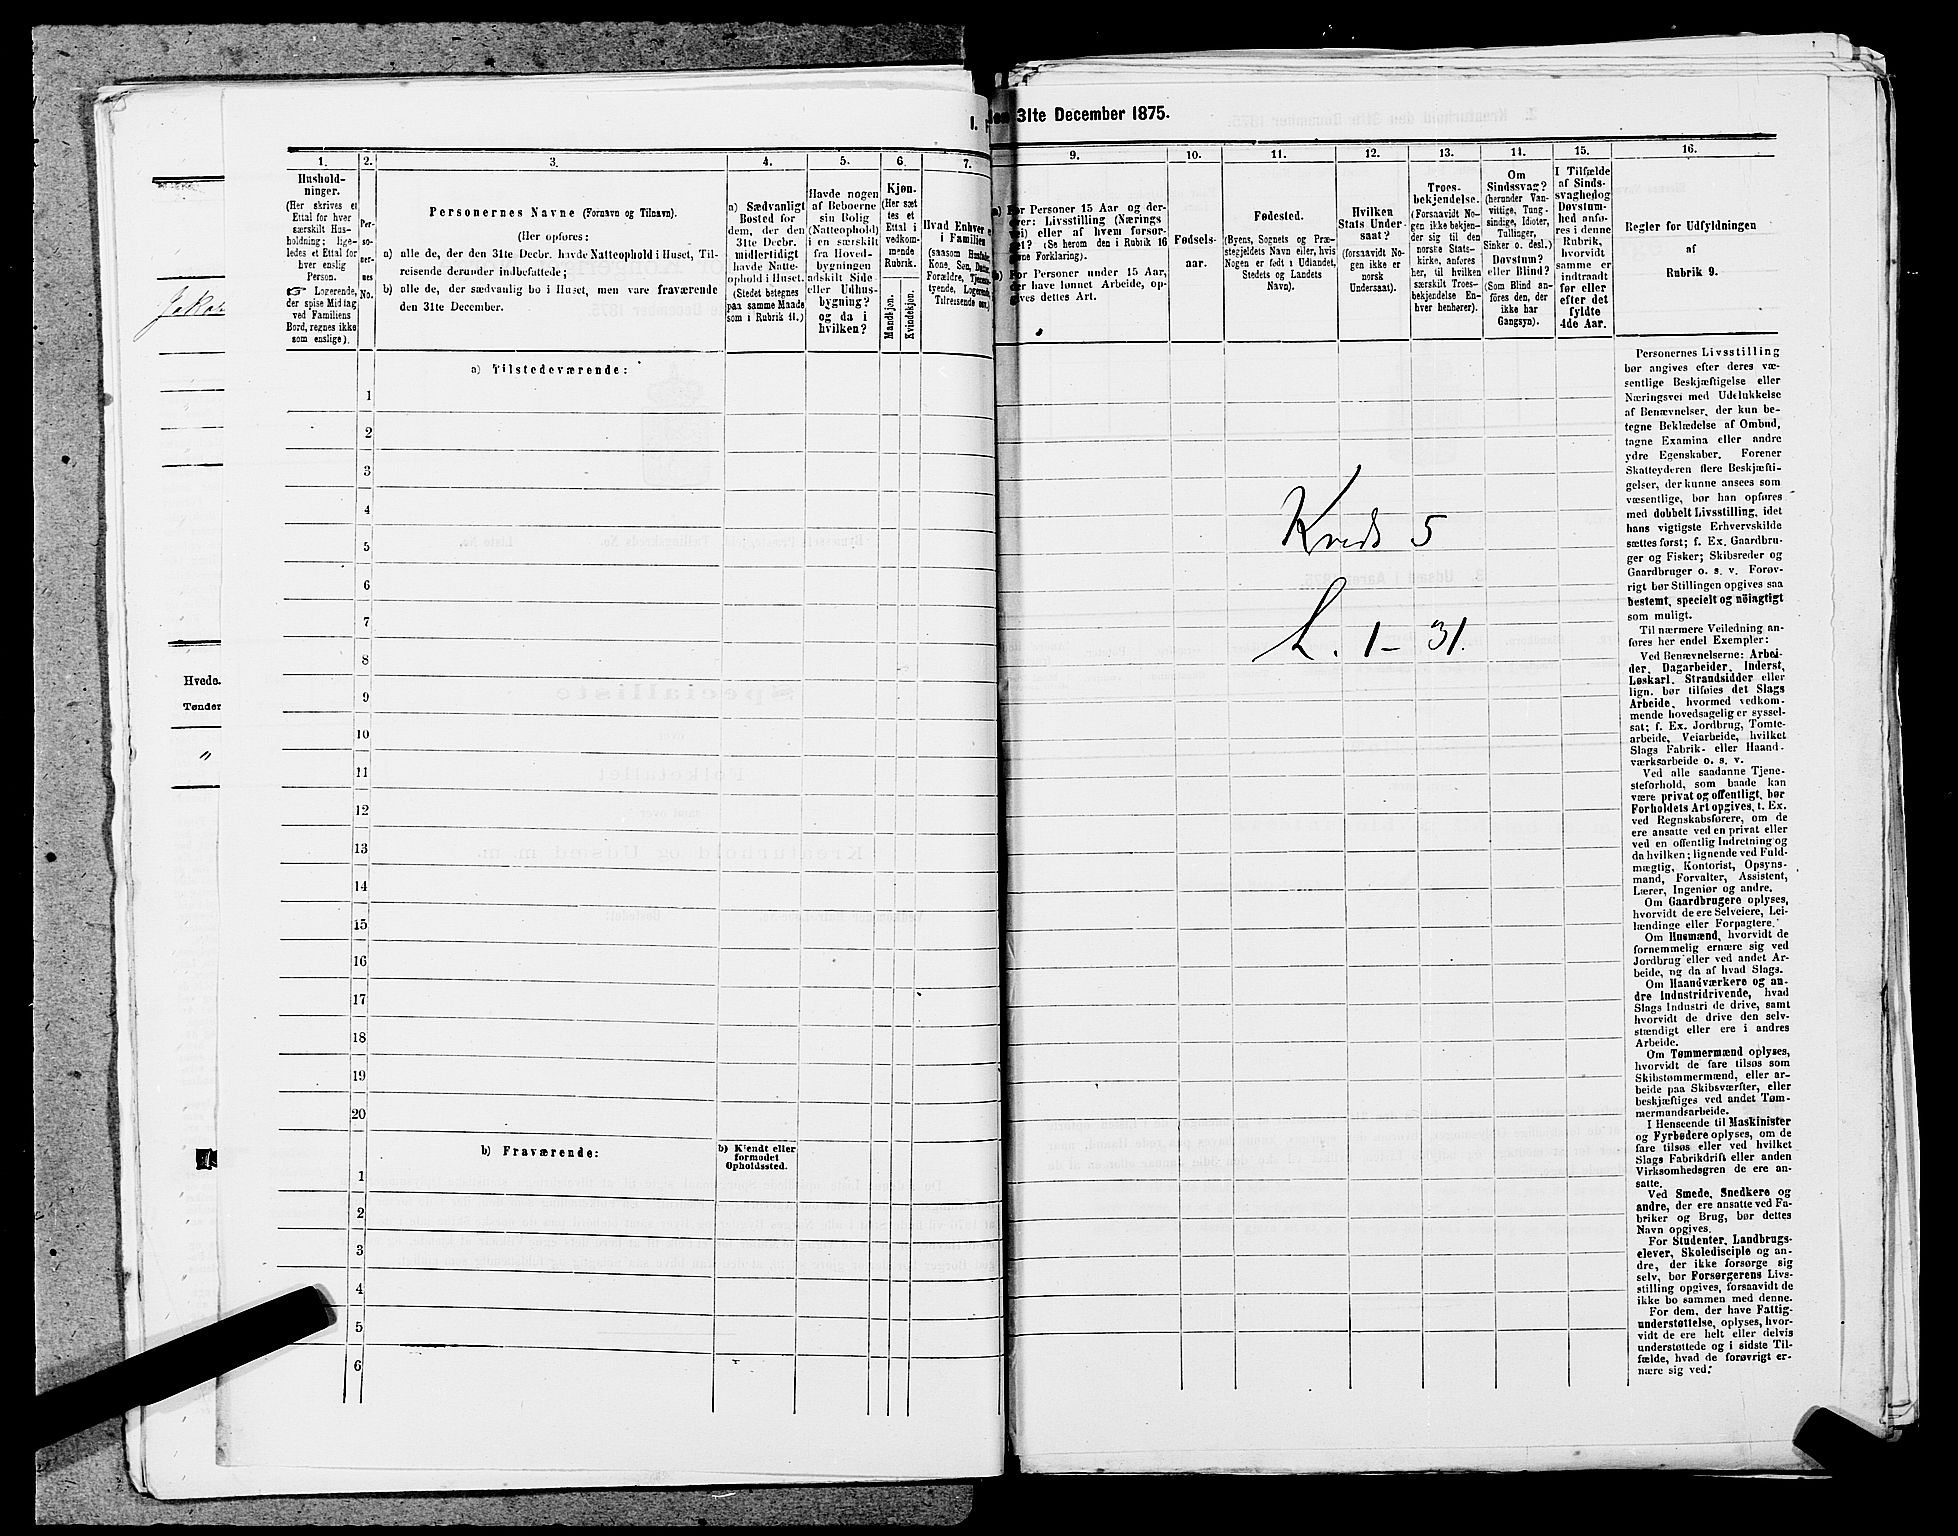 den 31te December 1875.
1.
1.
2.
3.
4.
5.
6.
7.
9.
10.
11.
12.
13.
14.
15.
16.
Hushold-
ninger.
(Her skrives et
Ettal for hver
særskilt Hus-
holdning; lige-
ledes et Ettal for
hver enslig
Person.
☞ Logerende,
der spise Middag
ved Familiens
Bord, regnes ikke
som enslige).
Per-
so-
ner-
nes
No.
Personernes Navne (Fornavn og Tilnavn).
(Her opføres:
a) alle de, der den 31te Decbr. havde Natteophold i Huset, Til-
reisende derunder indbefattede;
b) alle de, der sædvanlig bo i Huset, men vare fraværende
den 31te December.
a) Sædvanligt
Bosted for
dem, der den
31te Decbr.
midlertidigt
havde Natte-
ophold i Huset.
(Stedet betegnes
paa samme Maade
som i Rubrik 11.)
Havde nogen
af Beboerne
sin Bolig
(Natteophold)
i en særskilt
fra Hoved-
bygningen
adskilt Side-
eller Udhus-
bygning?
og da i
hvilken?
Kjøn.
(Her sæt
tes et
Ettal i
vedkom-
mende
Rubrik.
Mandkjøn.
Kvindekjøn.
Hvad Enhver er
i Familien
(saasom Husfader,
Kone, Søn, Datter,
Forældre, Tjenes-
tyende, Logerende,
Tilreisende osv.)
a) For Personer 15 Aar og der-
over: Livsstilling (Nærings
vei) eller af hvem forsør-
get? (Se herom den i Rubrik 16
givne Forklaring).
b) For Personer under 15 Aar,
der have lønnet Arbeide, op-
gives dettes Art.
Fødsels-
aar.
Fødested.
(Byens, Sognets og Præ-
stegjeldets Navn eller, hvis
Nogen er født i Udlandet,
Stedets og Landets
Navn).
Hvilken
Stats Under-
saat?
(forsaavidt No-
gen ikke er
norsk
Undersaat).
Troes-
bekjendelse.
(Forsaavidt No-
gen ikke bekjen-
der sig til den
norske Stats-
kirke, anføres
her, til hvilken
særskilt Troes-
bekjendelse En-
hver henhører).
Om
Sindssvag?
(herunder Van-
vittige, Tung-
sindige, Idioter,
Tullinger,
Sinker o. desl.)
Døvstum?
eller Blind?
(Som Blind an-
føres den, der
ikke har
Gangsyn).
I Tilfælde
af Sinds-
svaghed og
Døvstum-
hed anfø-
res i denne
Rubrik,
hvorvidt
samme er
indtraadt
før eller
efter det
fyldte
4de Aar.
Regler for Udfyldningen
af
Rubrik 9.
a) Tilstedeværende:
1
2
3
4
5
6
7
8
9
10
11
12
13
14
15
16
17
18
19
20
b) Fraværende:
b) Kjendt eller
formodet
Opholdssted.
1
2
3
4
5
6
Kreds 5
L. 1 – 31.
Hvede.
Tønder
"
Personernes Livsstilling
bør angives efter deres væ-
sentlige Beskjæftigelse eller
Næringsvei med Udelukkelse
af Benævnelser, der kun be-
tegne Beklædelse af Ombud,
tagne Examina eller andre
ydre Egenskaber. Forener
Skatteyderen flere Beskjæfti-
gelser, der kunne ansees som
væsentlige, bør han opføres
med dobbelt Livsstilling, idet
hans vigtigste Erhvervskilde
sættes først; f. Ex. Gaardbru-
ger og Fisker; Skibsreder og
Gaardbruger o. s. v. Forøv-
rigt bør Stillingen opgives saa
bestemt, specielt og nöiagtigt
som muligt.
Til nærmere Veiledning an-
føres her endel Exempler:
Ved Benævnelserne: Arbei-
der, Dagarbeider, Inderst,
Løskarl, Strandsidder eller
lign. bør tilføies det Slags
Arbeide, hvormed vedkom-
mende hovedsagelig er syssel-
sat; f. Ex. Jordbrug, Tomte-
arbeide, Veiarbeide, hvilket
Slags Fabrik- eller Haand-
værksarbeide o. s. v.
Ved alle saadanne Tjene-
steforhold, som baade kan
være privat og offentligt, bør
Forholdets Art opgives, f. Ex.
ved Regnskabsførere, om de
ere ansatte ved en privat eller
ved en offentlig Indretning og
da hvilken; lignende ved Fuld-
mægtig, Kontorist, Opsyns-
mand, Forvalter, Assistent,
Lærer, Ingeniør og andre.
Om Gaardbrugere oplyses,
hvorvidt de ere Selveiere, Lei-
lændinge eller Forpagtere.
Om Husmænd, hvorvidt de
fornemmelig ernære sig ved
Jordbrug eller ved andet Ar-
beide, og da af hvad Slags.
Om Haandværkere og an-
dre Industridrivende, hvad
Slags Industri de drive, samt
hvorvidt de drive den selv-
stændigt eller ere i andres
Arbeide.
Om Tømmermænd oplyses,
hvorvidt de fare tilsøs som
Skibstømmermænd, eller ar-
beide paa Skibsværfter, eller
beskjæftiges ved andet Tøm-
mermandsarbeide.
I Henseende til Maskinister
og Fyrbødere oplyses, om de
fare tilsøs eller ved hvilket
Slags Fabrikdrift eller anden
Virksomhedsgren de ere an-
satte.
Ved Smede, Snedkere og
andre, der ere ansatte ved Fa-
briker og Brug, bør dettes
Navn opgives.
For Studenter, Landbrugs-
elever, Skoledisciple og an-
dre, der ikke forsørge sig
selv, bør Forsørgerens Livs-
stilling opgives, forsaavidt de
ikke bo sammen med denne.
For dem, der have Fattig-
understøttelse, oplyses, hvor-
vidt de ere helt eller delvis
understøttede og i sidste Til-
fælde, hvad de forøvrigt er-
nære sig ved.